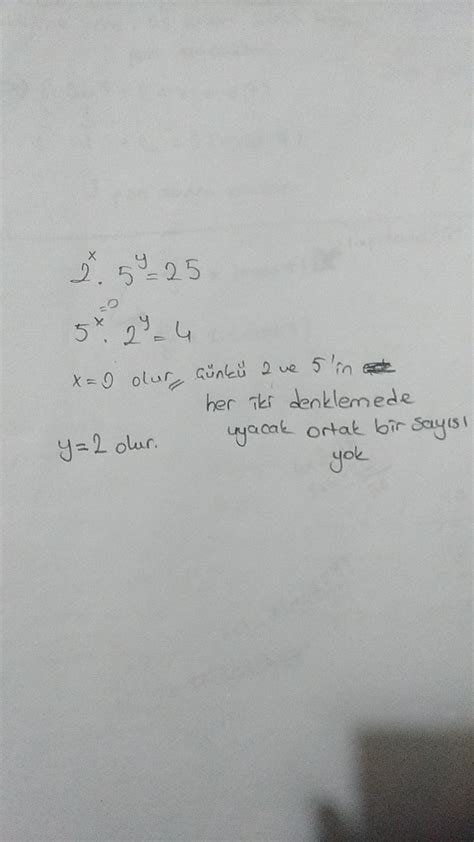 2^x . 5^y = 25
5^x=0 . 2^y = 4
x=0 olur, çünkü 2 ve 5'in
her iki denklemede
y=2 olur. uyacak ortak bir sayısı
yok